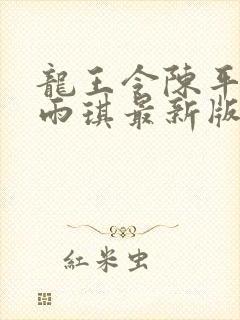 龍王令陳平
雨琪最新版
紅米虫